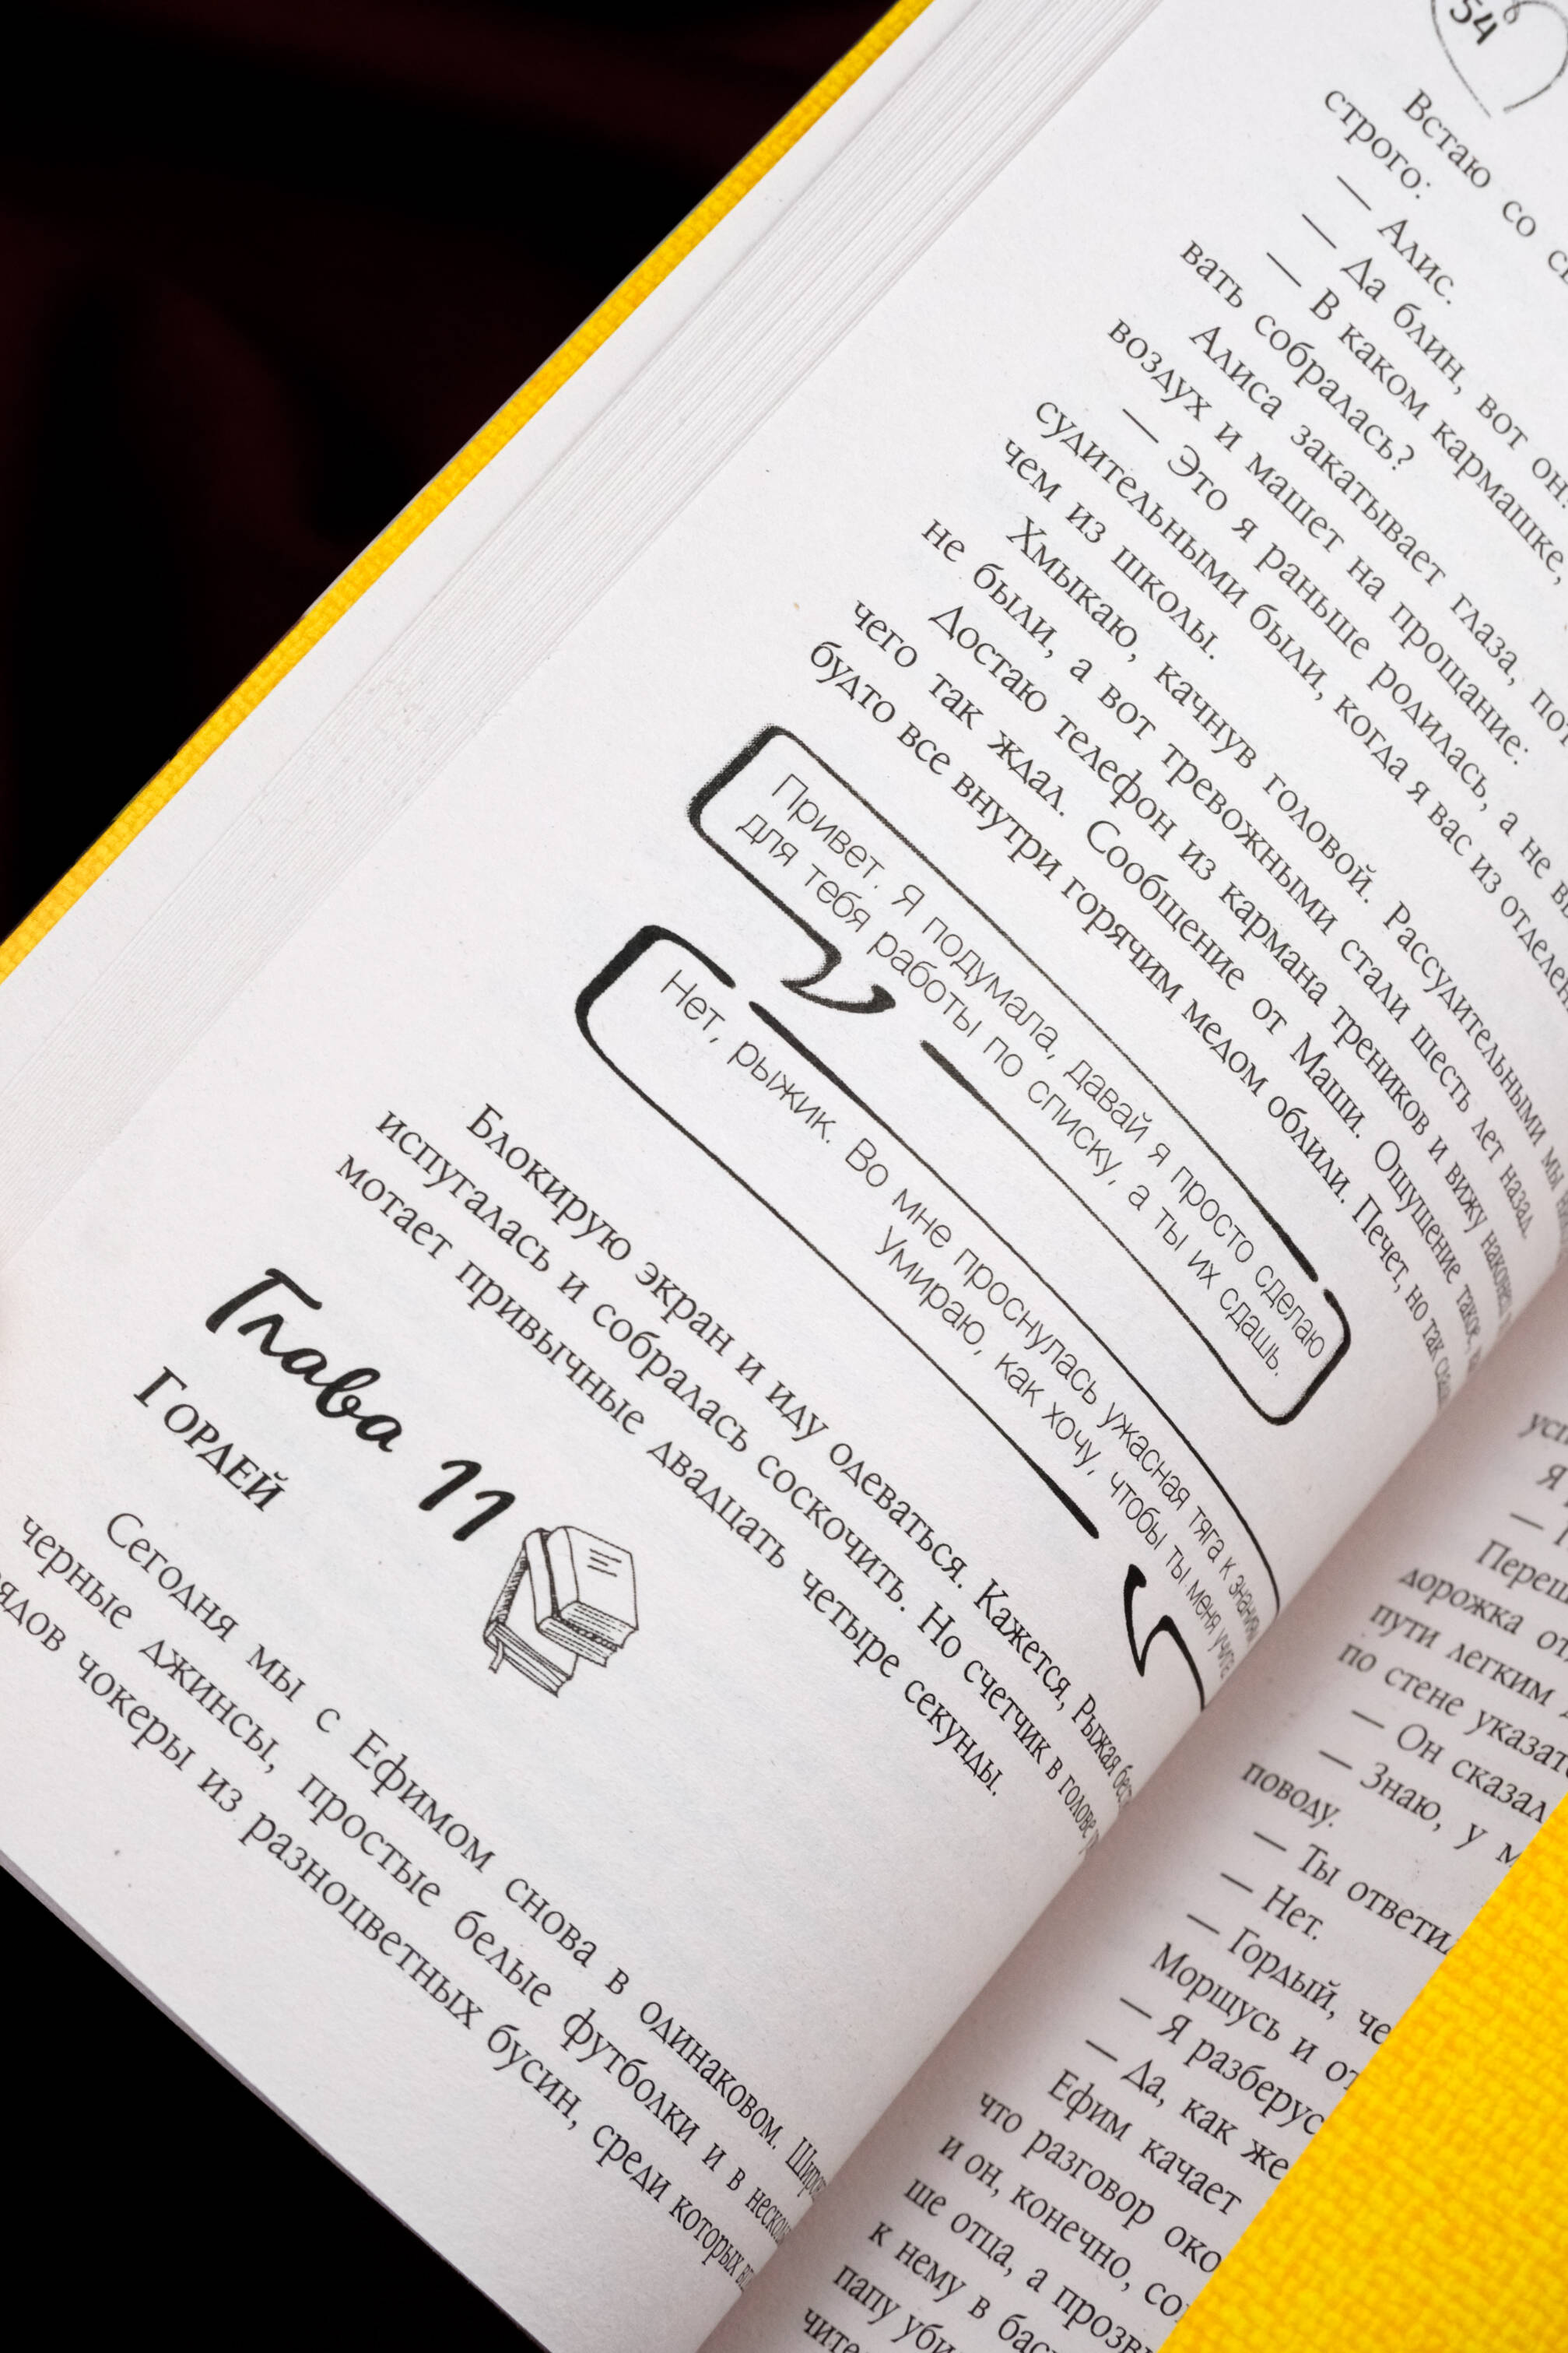 54
Встаю со
строго:
— Алис.
— Да блин, вот он.
— В каком кармашке,
вать собралась?
Алиса закатывает глаза,
воздух и машет на прощание:
— Это я раньше родилась, а не
судительными были, когда я вас из
чем из школы.
Хмыкаю, качнув головой. Рассудительными мы
не были, а вот тревожными стали шесть лет назад.
Достаю телефон из кармана треников и вижу
чего так ждал. Сообщение от Маши. Ощущение такое,
будто все внутри горячим медом облили. Печет, но так
Привет. Я подумала, давай я просто сделаю
для тебя работы по списку, а ты их сдашь.
Нет, рыжик. Во мне проснулась ужасная тяга к
Умираю, как хочу, чтобы ты меня
Блокирую экран и иду одеваться. Кажется, Рыжая
испугалась и собралась соскочить. Но счетчик в голове
мотает привычные двадцать четыре секунды.
Глава 11
Гордей
Сегодня мы с Ефимом снова в одинаковом.
черные джинсы, простые белые футболки и в
чокеры из разноцветных бусин, среди которых
Я
—
дорожка
пути легким
по стене
— Он сказал
— Знаю, у
поводу.
— Ты
— Нет.
— Гордый,
Морщусь и
— Я
— Да, как же
Ефим качает
что разговор
и он, конечно,
ше отца, а
к нему в
папу